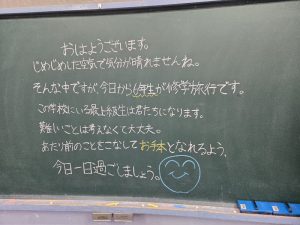 おはようございます。
じめじめした空気で気分が晴れませんね。
そんな中ですが、今日から6年生が修学旅行です。
この学校にいる最上級生は君たちになります。
難しいことは考えなくて大丈夫。
あたり前のことをこなしてお手本となれるよう、
今日一日過ごしましょう。